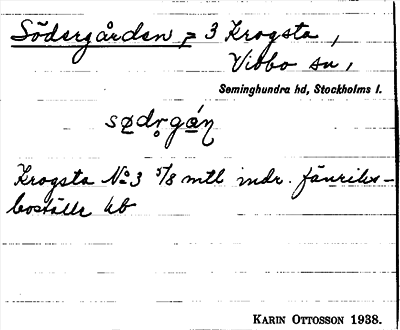 Södergården, = 3 Krogsta,
Vidbo sn,
Seminghundra hd, Stockholms l.
sødr̥gán
Krogsta No 3 5/8 mtl indr. fänriks-
boställe Ub
KARIN OTTOSSON 1938.